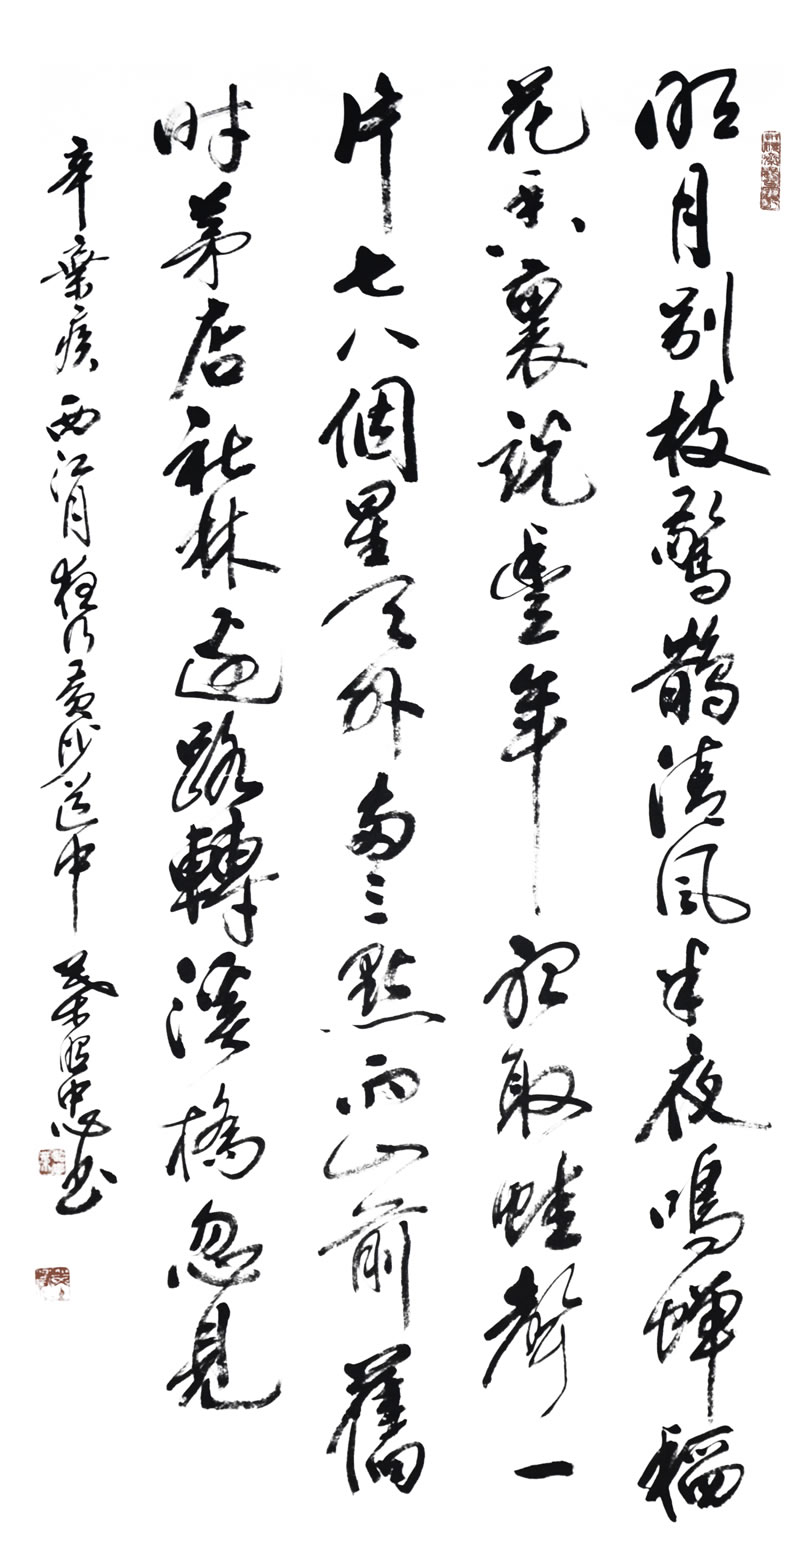 明月别枝驚鵲清風半夜鳴蟬稻
花香裏説豐年聽取蛙聲一
片七八個星天外兩三點雨山前舊
時茅店社林邊路轉溪橋忽見
辛棄疾西江月夜行黄沙道中 忠书